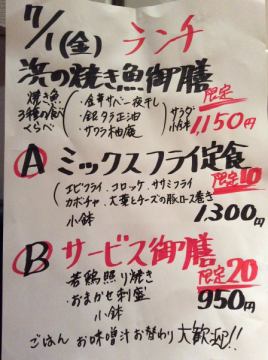 7/1(金) ランチ
浜の焼き魚御膳
焼き魚3種の食べくらべ
・金華サバ一夜干し
・銀タラ正油
・サワラ柚庵
サラダ
小鉢
限定
1,150円
A ミックスフライ定食
限定10
エビフライ、コロッケ、ササミフライ
カボチャ、大葉とチーズの豚ロース巻き
小鉢
1,300円
B サービス御膳
限定20
若鶏照り焼き
・おまかせ刺盛
小鉢
950円
ごはん お味噌汁お替わり大歓迎!!